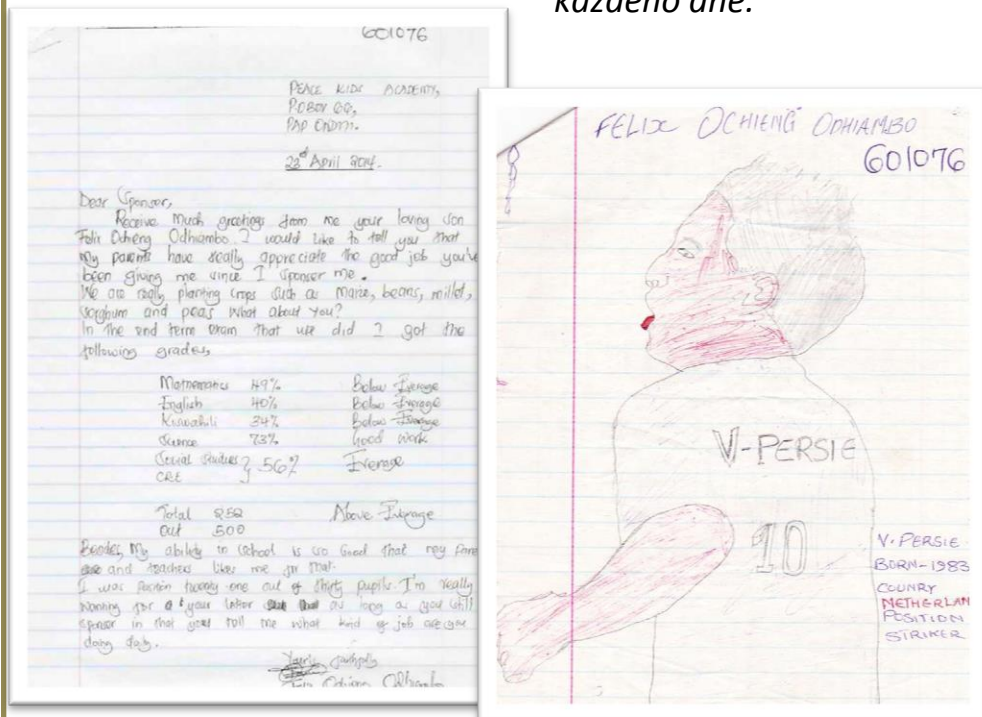 každého dne.
601076
PEACE KIDS ACADEMY,
P.O BOX
PAP ONDITI.
23rd April 2014.
Dear Sponsor,
Receive Much greetings from me your loving son
Felix Ochieng Odhiambo. I would like to tell you that
My parents have really appreciate the good job you've
been giving me since I sponser me.
We are really planting crops such as maize, beans, millet,
sorghum and peas what about you?
In the end term exam that we did I got the
following grades,
Mathematics 49% Below Average
English 40% Below Average
Kiswahili 34% Below Average
Science 73% Good Work
Social Studies } 56% Average
CRE
Total 252 Above Average
Out 500
Besides, My ability to school is so Good that my
and teachers likes me for that.
I was position twenty one out of thirty pupils. I'm really
for your letter as long as you still
sponser in that you tell me what kind of job are you
doing daily.
Yours
Felix Ochieng Odhiambo
FELIX OCHIENG ODHIAMBO
601076
V-PERSIE
10
V. PERSIE
BORN-1983
COUNRY
NETHERLAN
POSITION
STRIKER